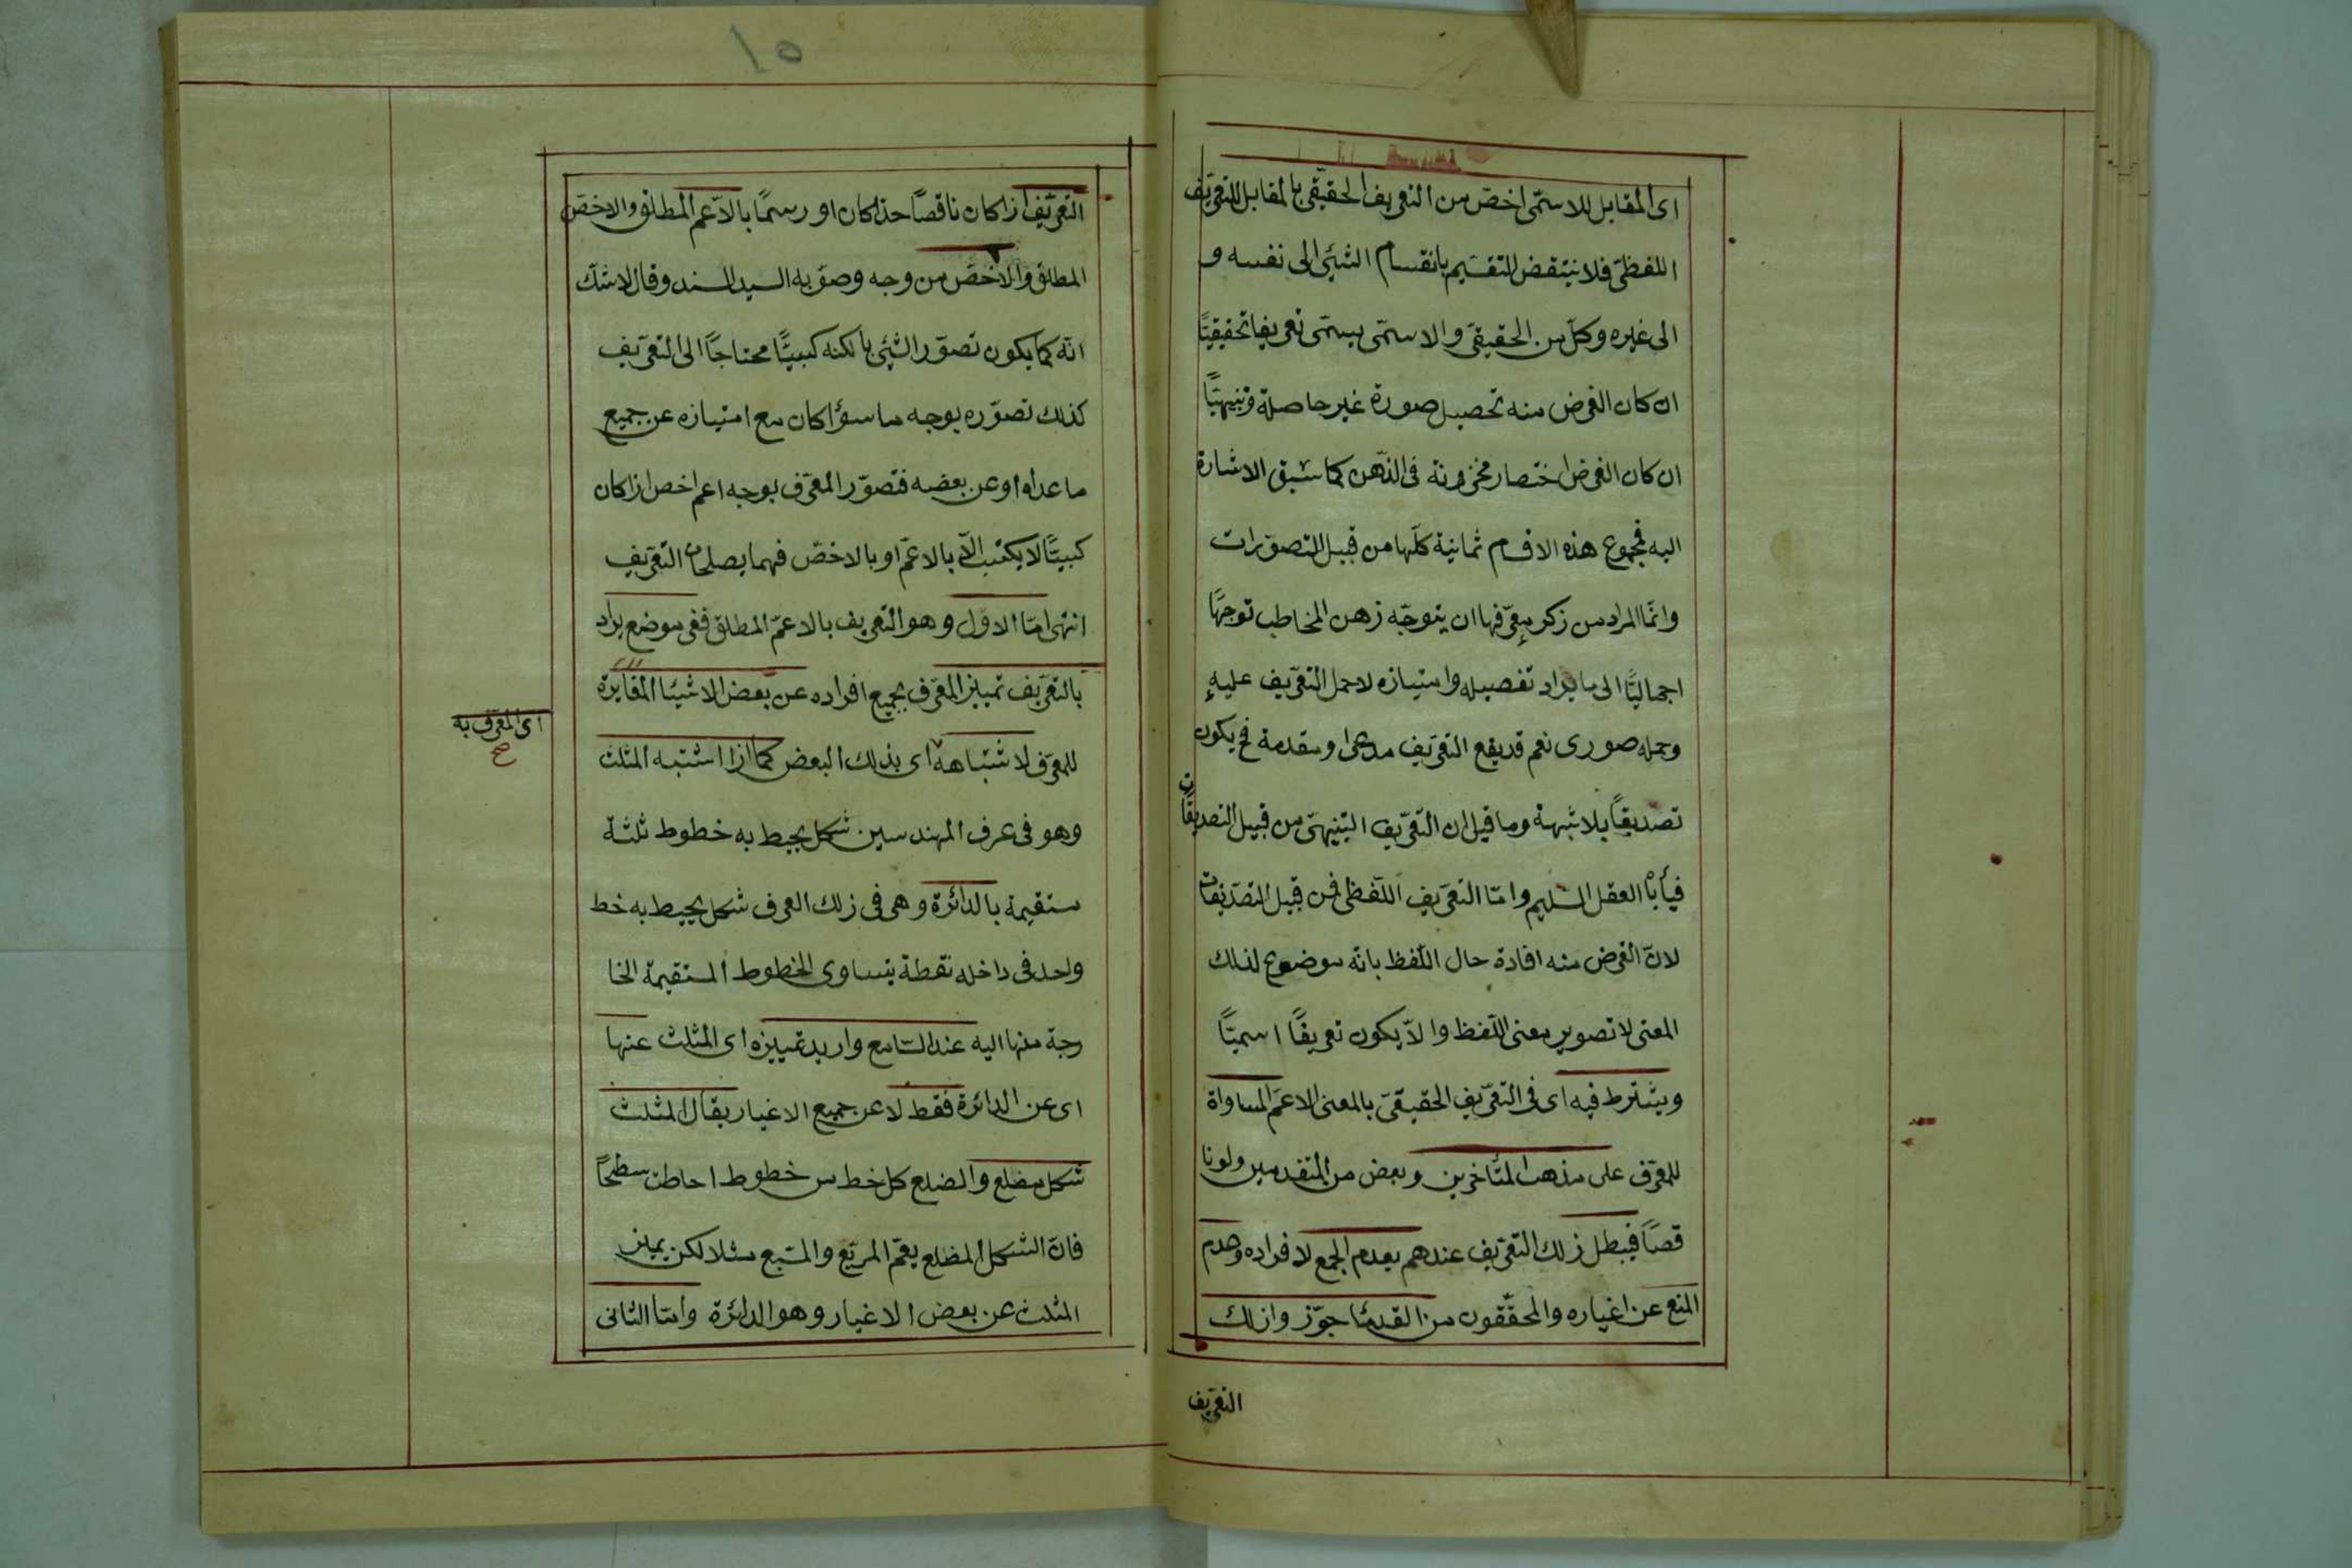 اى المقابل للاسمّى اخصّ من التعريف الحقيقى بالمقابل للتعريف
اللفظىّ فلا ينتقض التقسيم بانقسام الشيئ الى نفسه و
الى غيره وكل من الحقيقىّ والاسمّى يسمّى تعريفا تحقيقيّاً
ان كان الغرض منه تحصيل صورة غير حاصلة وتنبيهيّاً
ان كان الغرض احتضار مخزونة فى الذّهن كما سبق الاشارة
اليه فمجموع هذه الاقسام ثمانية كلّها من قبيل التصوّرات
وانمّا المراد من ذكر معرّفها ان يتوجّه ذهن المخاطب توجهًا
اجماليًّا الى ما يراد تفصيله وامتيازه لاحمل التعريف عليهِ
وحمله صورى نعم قد يقع التعريف مدعى ومقدمة فح يكون
تصديقاً بلا شبهة وما قيل ان التعرّيف التنبيهىّ من قبيل التصديقات
فيأباه العقل السّليم وامّا التعريف اللّفظى فمن قبيل التصديقات
لانّ الغرض منه افادة حال اللّفظ بانه موضوع لذلك
المعنى لا تصوير معنى اللّفظ والاّ يكون تعريفًا اسميًّا
ويشترط فيه اى فى التعرّيف الحقيقىّ بالمعنى الاعمّ المساواة
للمعرّف على مذهب المتأخرين وبعض من المتقدمين ولونا
قصًا فيبطل ذلك التعرّيف عندهم بعدم الجمع لافراده وعدم
المنع عن اغياره والمحقّقون من القدمٓا جوّزوا ذلك
التعريف
١٥
التعرّيف اذا كان ناقصًا حدا كان او رسمًا بالاعّم المطلق والاخصّ
المطلق والاخصّ من وجه وصوّبه السيد السند وقال لاشكّ
انّه كما يكون تصوّر الشيئ بالكنه كسبيًّا محتاجًا الى التعرّيف
كذلك تصوّره بوجه ما سوٓا كان مع امتيازه عن جميع
ما عداه او عن بعضه فتصوّر المعرّف بوجه اعم اخص اذا كان
كسبيًّا لا يكتسب الاّ بالاعمّ او بالاخصّ فهما يصلحان التعرّيف
انتهى امّا الاوّل وهو التعريف بالاعمّ المطلق ففى موضع يراد
بالتعرّيف تمييز المعرّف بجميع افراده عن بعض الاشيٓا المغايرة
للمعرّف لاشتباهه اى بذلك البعض كما اذا اشتبه المثلث
اى المعرّف به
صح
وهو فى عرف المهندسين شكل يحيط به خطوط ثلثة
مستقيمة بالدائرة وهى فى ذلك العرف شكل يحيط به خط
واحد فى داخله نقطة يتساوى الخطوط المستقيمة الخا
رجة منها اليه عند السّامع واريد تمييزه اى المثلث عنها
اى عن الدائرة فقط لا عن جميع الاغيار يقال المثلث
شكل مضلع والضلع كل خط من خطوط احاطت سطحًا
فانّ الشكل المضلع يعمّ المربّع والمسّبع مثلا لكن يميز
المثلث عن بعض الاغيار وهو الدائرة وامّا الثانى